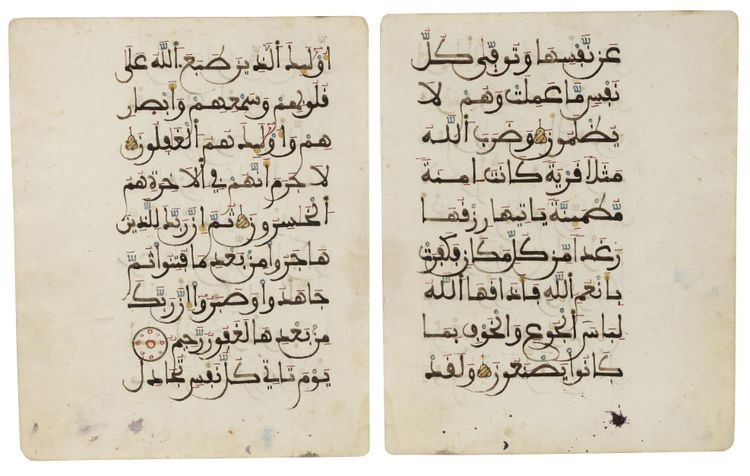 أولئك الذين طبع الله على
قلوبهم وسمعهم وأبصار
هم وأولئك هم الغفلون
لا جرم أنهم في الاخرة هم
الخسرون ثم إن ربك للذين
هاجروا من بعد ما فتنوا ثم
جاهدوا وصبروا إن ربك
من بعدها لغفور رحيم
يوم تاتي كل نفس تجادل
عن نفسها وتوفى كل
نفس ما عملت وهم لا
يظلمون وضرب الله
مثلا قرية كانت امنة
مطمئنة ياتيها رزقها
رغدا من كل مكان فكفرت
بانعم الله فاذاقها الله
لباس الجوع والخوف بما
كانوا يصنعون ولقد